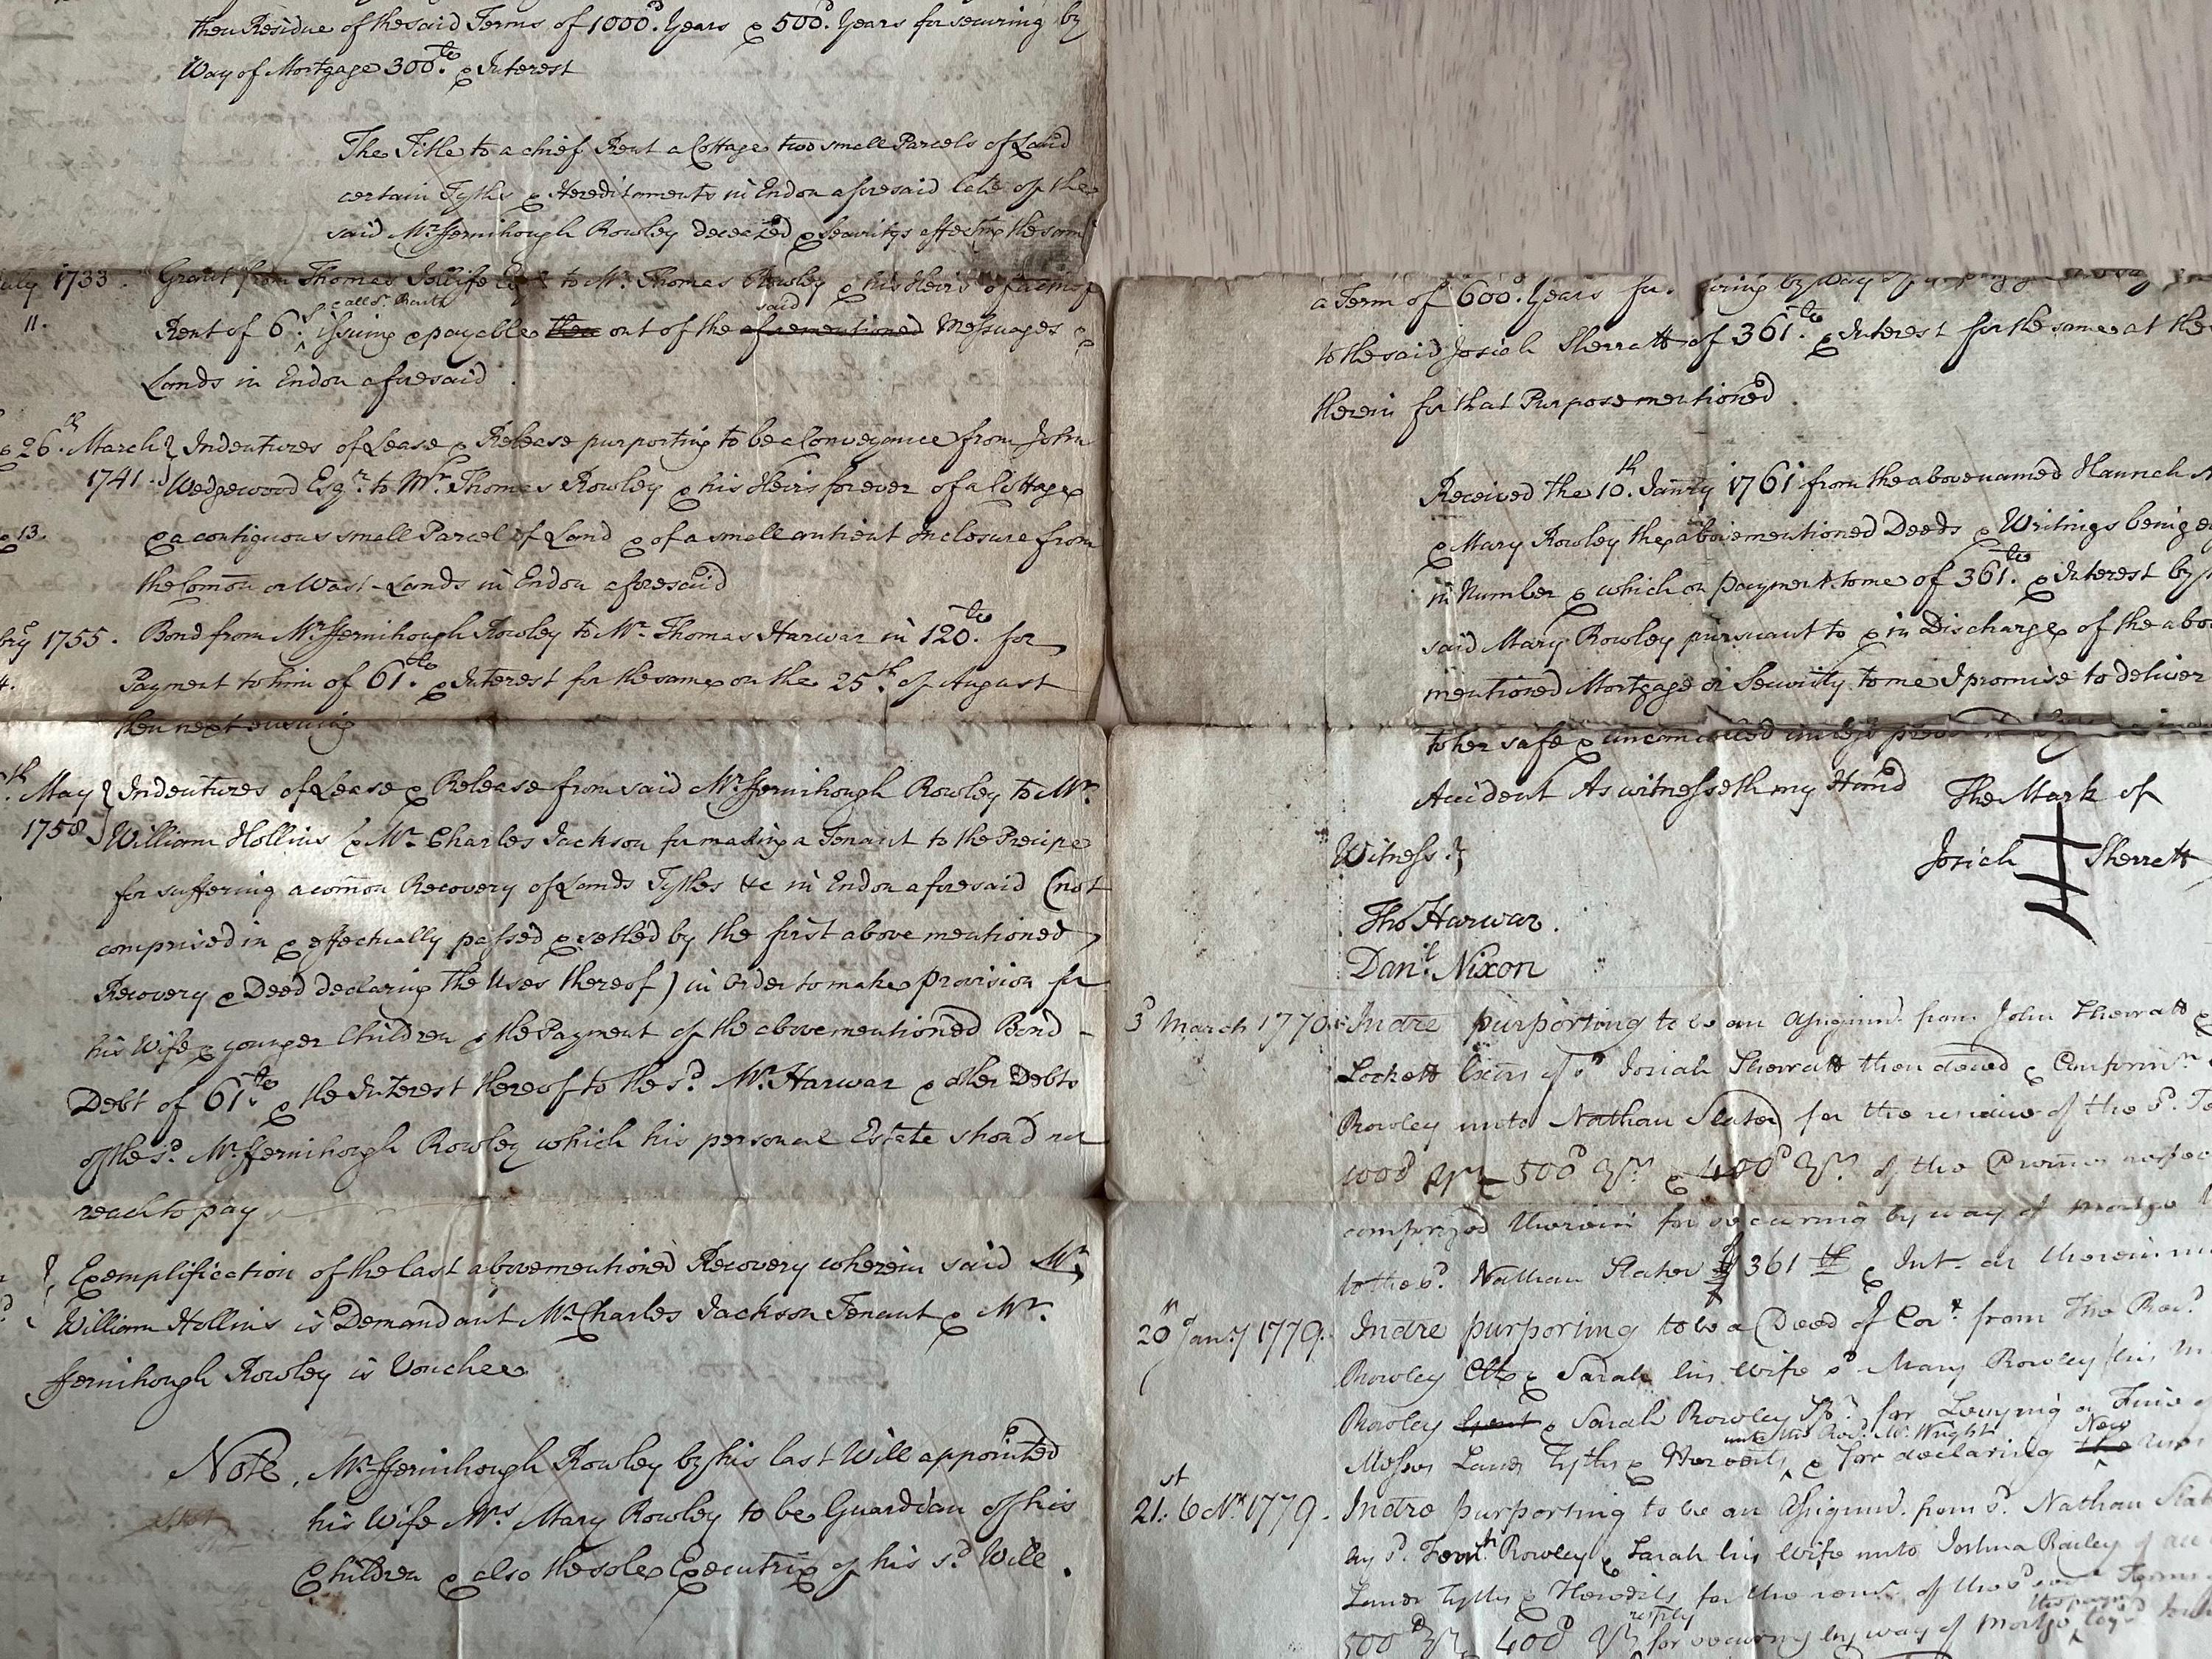 then Residue of the said Terms of 1000d. Years & 500d. Years for securing by
Way of Mortgage 300li. & Interest
The Title to a chief Rent a Cottage two small Parcels of Land
certain Tyths & Hereditaments in Endon aforesaid late of the
said Mr. ffernihough Rowley deceased & Securitys affecting the same
1733. Grant from Thomas Jolliffe Esqr. to Mr. Thomas Rowley & his Heirs of a chief
11. Rent of 6s. issuing & payable then out of the aforementioned said Messuages &
Lands in Endon aforesaid.
& 26th. March 1741. Indentures of Lease & Release purporting to be a Conveyance from John
Wedgewood Esqr. to Mr. Thomas Rowley & his Heirs forever of a Cottage
& 13. & a contiguous small Parcel of Land & of a small antient Inclosure from
the Comon or Wast-Lands in Endon aforesaid
1755. Bond from Mr. ffernihough Rowley to Mr. Thomas Harwar in 120li. for
Payment to him of 61li. & Interest for the same on the 25th. of August
then next ensuing
May 1758 Indentures of Lease & Release from said Mr. ffernihough Rowley to Mr.
William Hollins & Mr. Charles Jackson for making a Tenant to the Precipe
for suffering a comon Recovery of Lands Tythes &c in Endon aforesaid (not
comprised in & effectually passed & setled by the first above mentioned
Recovery & Deed declaring the Uses thereof) in order to make provision for
his Wife & younger Children & the Payment of the abovementioned Bond
Debt of 61li. & the Interest thereof to the sd. Mr. Harwar & other Debts
of the sd. Mr. ffernihough Rowley which his personal Estate shou'd not
reach to pay
Exemplification of the last abovementioned Recovery wherein said Mr.
William Hollins is Demandant Mr. Charles Jackson Tenant & Mr.
ffernihough Rowley is Vouchee
Note, Mr. ffernihough Rowley by his last Will appointed
his Wife Mrs. Mary Rowley to be Guardian of his
Children & also the sole Executrix of his sd. Will.
a Term of 600d. Years by Way of
to the said Josiah Sherratt of 361li. & Interest for the same at the
therein for that Purpose mentioned
Received the 10th. Janry 1761 from the abovenamed Haunch
& Mary Rowley the abovementioned Deeds & Writings being
in Number & which on payment to me of 361li. & Interest by
said Mary Rowley pursuant to & in Discharge of the
mentioned Mortgage or Security to me I promise to deliver
to her safe & uncancelled unless
Accident As witnesseth my Hand
The Mark of
Josiah Sherratt
Witness.
Tho Harwar.
Danl. Nixon
3d March 1770. Indre purporting to be an Assignmt. from John Sherratt &
Lockett Exors of sd Josiah Sherratt then deced &
Rowley unto Nathan Slater for the residue of the sd.
1000d Yrs 500d Yrs. & 400d Yrs. of the
comprized therein for securing by way of Mortge
to the sd. Nathan Slater of 361li & Int. as therein
20th Jany 1779. Indre purporting to be a Deed of Covt. from The Revd.
Rowley Clk & Sarah his Wife sd. Mary Rowley his
Rowley Gent & Sarah Rowley Spr. for Levying a Fine
Messes Lands Tyths & Heredits, unto the Revd. Mr. Wright & for declaring the New
21st. 1779. Indre purporting to be an Assignmt. from sd. Nathan
by sd. Rowley & Sarah his Wife unto Joshua Bailey of
Lands Tyths & Heredits for the of the Terms
500d Yrs 400d Yrs resply for securing by way of Mortge